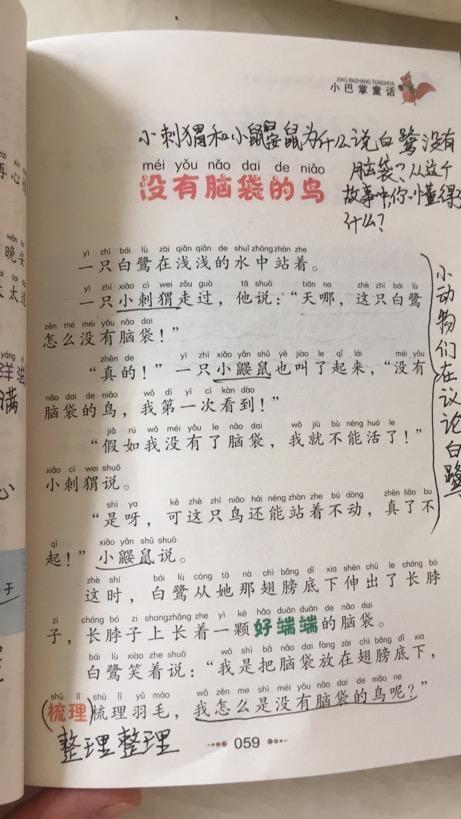 XIAO BAZHANG TONGHUA
小巴掌童话
小刺猬和小鼹鼠为什么说白鹭没有
脑袋?从这个
故事中你懂得了
什么?
méi yǒu nǎo dai de niǎo
没有脑袋的鸟
yì zhī bái lù zài qiǎn qiǎn de shuǐ zhōng zhàn zhe
一只白鹭在浅浅的水中站着。
yì zhī xiǎo cì wei zǒu guò tā shuō tiān na zhè zhī bái lù
一只小刺猬走过，他说：“天哪，这只白鹭
zěn me méi yǒu nǎo dai
怎么没有脑袋！”
zhēn de yì zhī xiǎo yǎn shǔ yě jiào le qǐ lái méi yǒu
“真的！”一只小鼹鼠也叫了起来，“没有
nǎo dai de niǎo wǒ dì yī cì kàn dào
脑袋的鸟，我第一次看到！”
jiǎ rú wǒ méi yǒu le nǎo dai wǒ jiù bù néng huó le
“假如我没有了脑袋，我就不能活了！”
xiǎo cì wei shuō
小刺猬说。
shì ya kě zhè zhī niǎo hái néng zhàn zhe bú dòng zhēn liǎo bu
“是呀，可这只鸟还能站着不动，真了不
qǐ xiǎo yǎn shǔ shuō
起！”小鼹鼠说。
zhè shí bái lù cóng tā nà chì bǎng dǐ xia shēn chū le cháng bó
这时，白鹭从她那翅膀底下伸出了长脖
zi cháng bó zi shang zhǎng zhe yì kē hǎo duān duān de nǎo dai
子，长脖子上长着一颗好端端的脑袋。
bái lù xiào zhe shuō wǒ shì bǎ nǎo dai fàng zài chì bǎng dǐ xia
白鹭笑着说：“我是把脑袋放在翅膀底下，
shū lǐ shū lǐ yǔ máo wǒ zěn me shì méi yǒu nǎo dai de niǎo ne
梳理梳理羽毛，我怎么是没有脑袋的鸟呢？”
整理整理
小动物们在议论白鹭
059